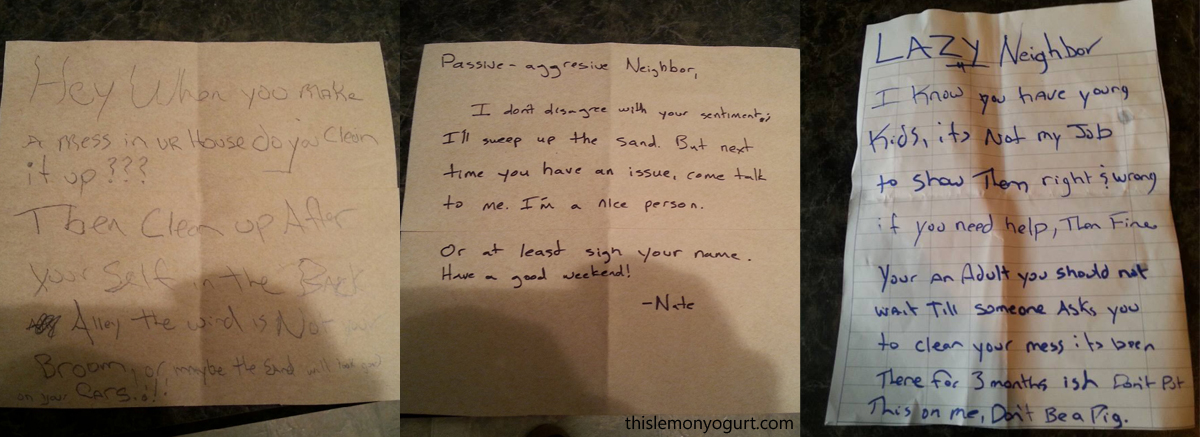 Hey When you make
a mess in ur House do you Clean
it up???
Then Clean up After
your Self in the Back
Alley the wind is Not your
Broom, or maybe the Sand will look good
on your Cars.!!
Passive-aggresive Neighbor,
I don't disagree with your sentiment;
I'll sweep up the sand. But next
time you have an issue, come talk
to me. I'm a nice person.
Or at least sign your name.
Have a good weekend!
-Nate
LAZY Neighbor
I Know you have young
Kids, its Not my Job
to show Them right & wrong
if you need help, Then Fine
Your an Adult you should not
wait Till someone Asks you
to clean your mess its been
There for 3 months ish Don't Put
This on me, Don't Be a Pig.
thislemonyogurt.com